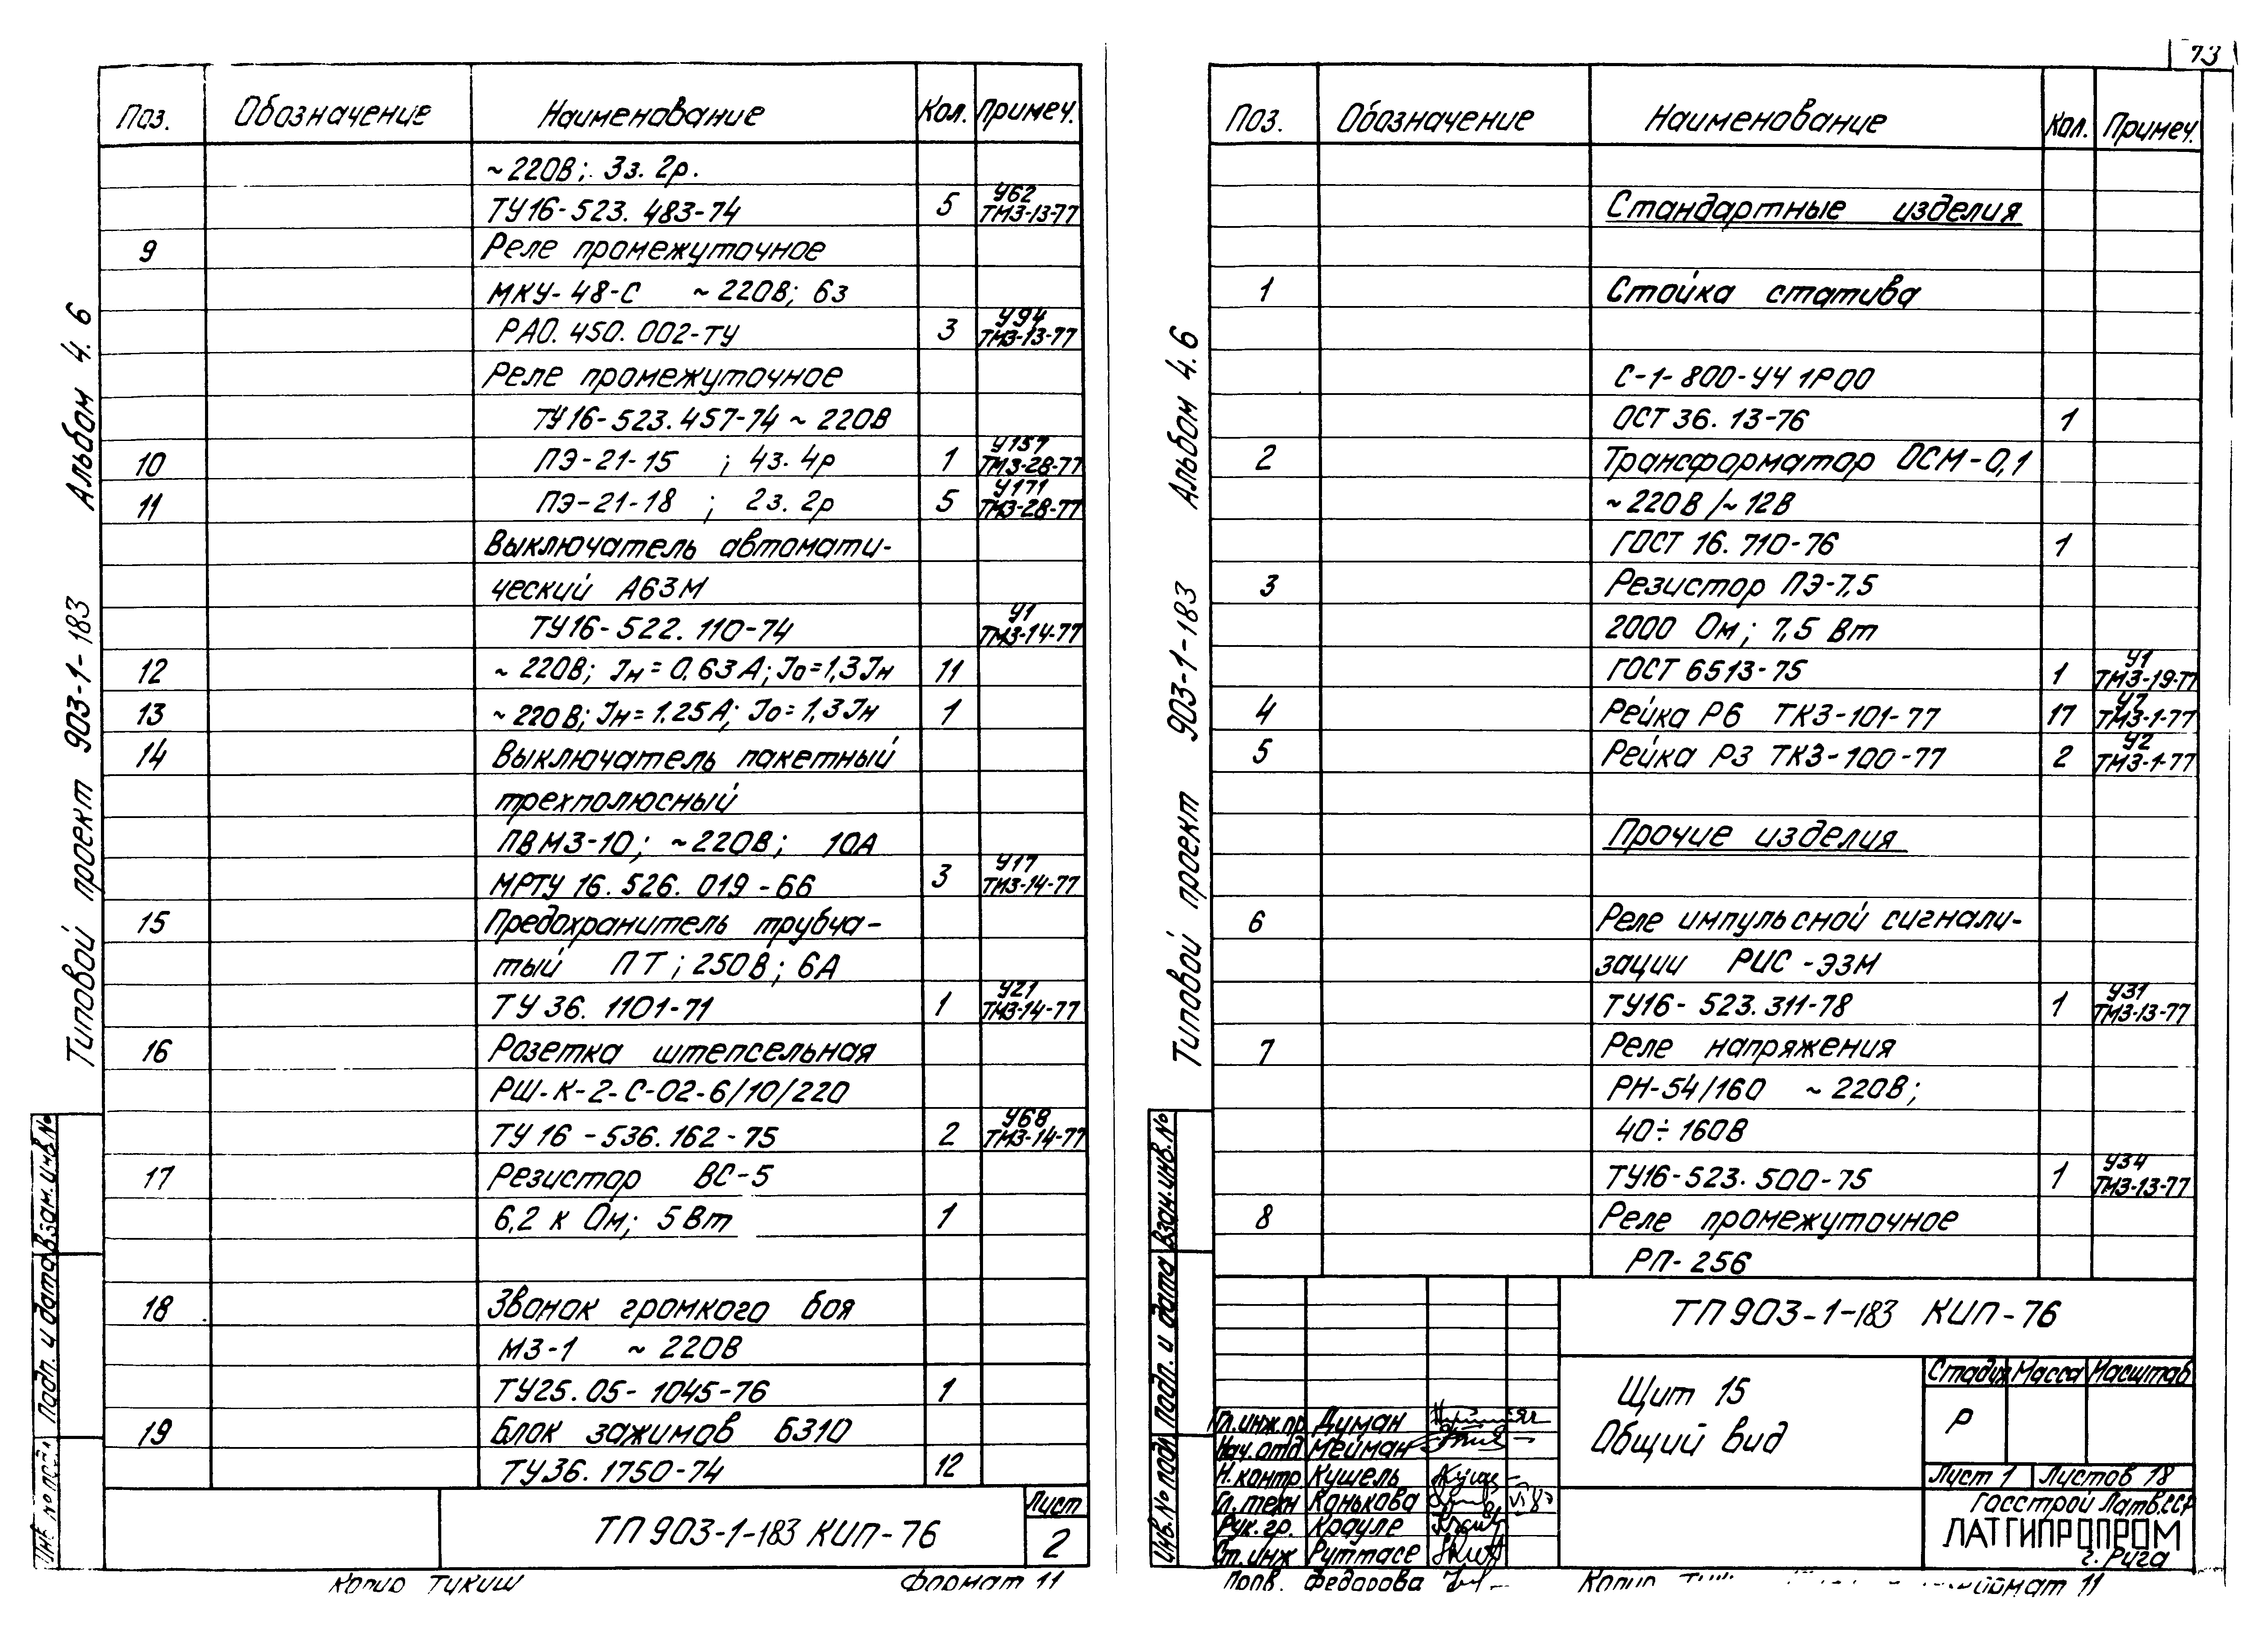 Альбом 4.6
Типовой проект 903-1-183
Поз. Обозначение Наименование Кол. Примеч.
~220В; 3з. 2р.
ТУ16-523.483-74 5 У62 ТМ3-13-77
9 Реле промежуточное
МКУ-48-С ~220В; 6з
РА0.450.002-ТУ 3 У94 ТМ3-13-77
Реле промежуточное
ТУ16-523.457-74 ~220В
10 ПЭ-21-15 ; 4з. 4р 1 У157 ТМ3-28-77
11 ПЭ-21-18 ; 2з. 2р 5 У171 ТМ3-28-77
Выключатель автомати-
ческий А63М
ТУ16-522.110-74 У1 ТМ3-14-77
12 ~220В; Iн=0,63А; Iо=1,3Iн 11
13 ~220В; Iн=1,25А; Iо=1,3Iн 1
14 Выключатель пакетный
трехполюсный
ПВМ3-10; ~220В; 10А
МРТУ 16.526.019-66 3 У17 ТМ3-14-77
15 Предохранитель трубча-
тый ПТ; 250В; 6А
ТУ36.1101-71 1 У21 ТМ3-14-77
16 Розетка штепсельная
РШ-К-2-С-02-6/10/220
ТУ16-536.162-75 2 У68 ТМ3-14-77
17 Резистор ВС-5
6,2 к Ом; 5Вт 1
18 Звонок громкого боя
МЗ-1 ~220В
ТУ25.05-1045-76 1
19 Блок зажимов БЗ10
ТУ36.1750-74 12
ТП903-1-183 КИП-76
Лист
2
Инв. № подл. Подп. и дата Взам. инв. №
Копир Тукиш Формат 11
73
Альбом 4.6
Типовой проект 903-1-183
Поз. Обозначение Наименование Кол. Примеч.
Стандартные изделия
1 Стойка статива
С-1-800-У4 1Р00
ОСТ 36.13-76 1
2 Трансформатор ОСМ-0,1
~220В/~12В
ГОСТ 16.710-76 1
3 Резистор ПЭ-7,5
2000 Ом; 7,5 Вт
ГОСТ 6513-75 1 У1 ТМ3-19-77
4 Рейка Р6 ТК3-101-77 17 У7 ТМ3-1-77
5 Рейка Р3 ТК3-100-77 2 У2 ТМ3-1-77
Прочие изделия
6 Реле импульсной сигнали-
зации РИС-Э3М
ТУ16-523.311-78 1 У31 ТМ3-13-77
7 Реле напряжения
РН-54/160 ~220В;
40÷160В
ТУ16-523.500-75 1 У34 ТМ3-13-77
8 Реле промежуточное
РП-256
ТП903-1-183 КИП-76
Щит 15
Общий вид
Стадия Масса Масштаб
Р
Лист 1 Листов 18
Госстрой Латв.ССР
ЛАТГИПРОПРОМ
г. Рига
Гл.инж.пр Думан
Нач.отд Мейман
Н.контр Кушель
Гл.техн Канькова
Рук.гр. Крауле
Ст.инж Руттасе
Пров. Федорова
Инв. № подл Подп. и дата Взам. инв. №
Копир Формат 11